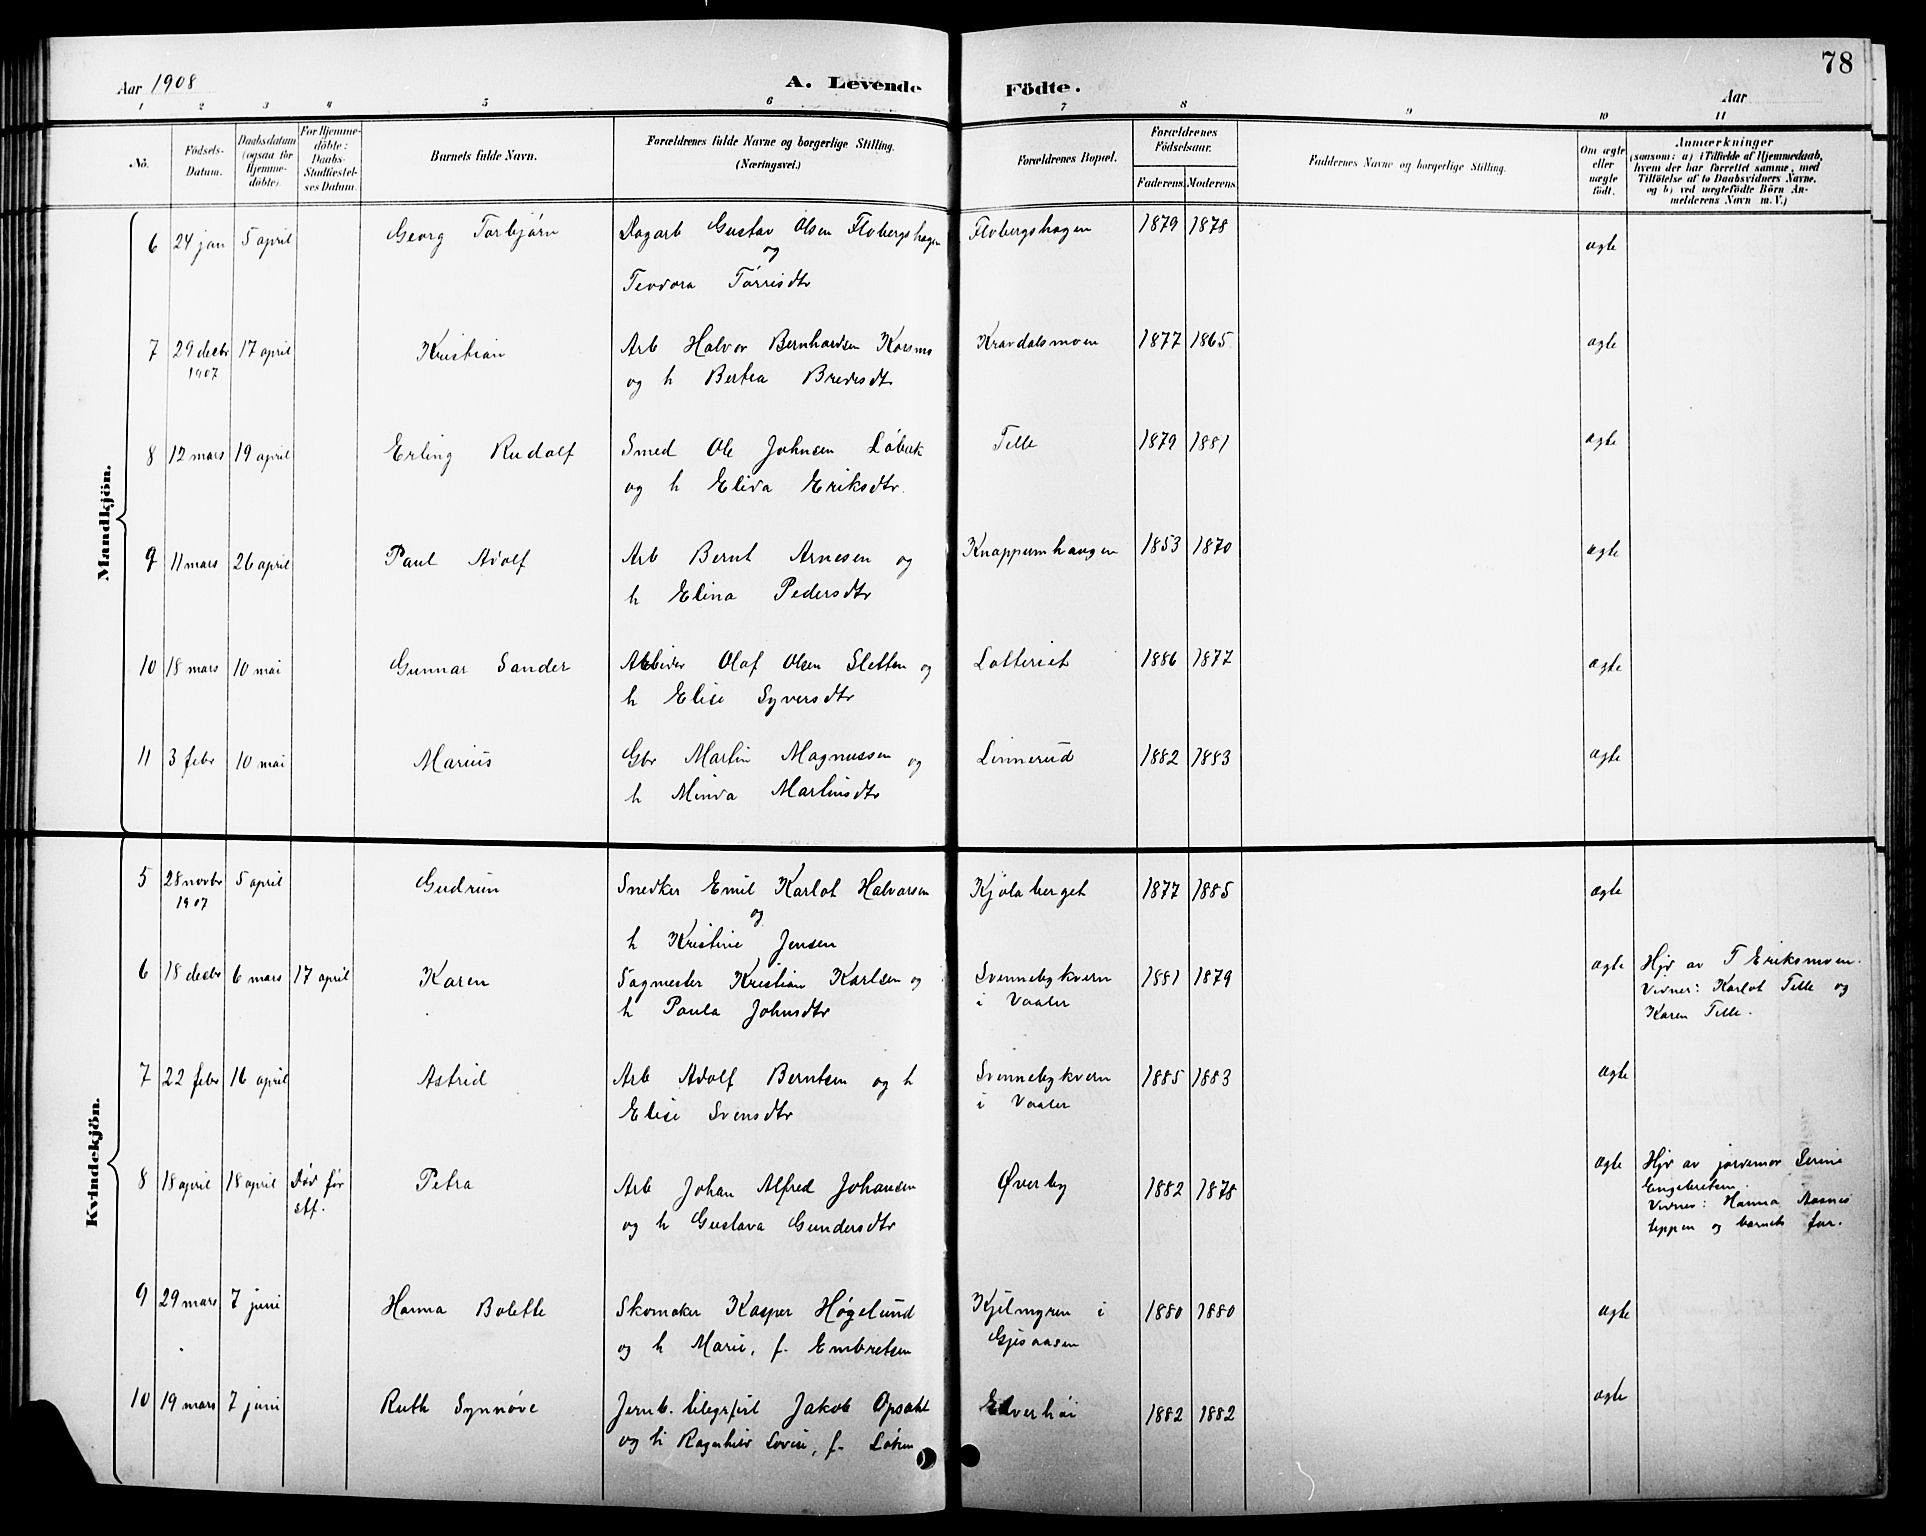 78
Aar 1908
A. Levende Födte.
Aar
1 2 3 4 5 6 7 8 9 10 11
No.
Födsels-Datum.
Daabsdatum (ogsaa for Hjemme-döbte).
For Hjemme-döbte: Daabs-Stadfæstel-ses Datum.
Barnets fulde Navn.
Forældrenes fulde Navne og borgerlige Stilling. (Næringsvei.)
Forældrenes Bopæl.
Forældrenes Födselsaar.
Faderens Moderens
Faddernes Navne og borgerlige Stilling.
Om ægte eller uægte født.
Anmærkninger
(saasom: a) i Tilfælde af Hjemmedaab, hvem der har forrettet samme, med Tilføielse af to Daabsvidners Navne, og b) ved uægtefödte Börn An-melderens Navn m. V.)
Mandkjön.
6 24 jan 5 april Georg Torbjørn Dagarb Gustav Olsen Flobergshagen Flobergshagen 1879 1878 ægte
og
Teodora Tørrisdtr
7 29 decbr 17 april Kristian Arb Halvor Bernhardsen Korsmo Kravdalsmoen 1877 1865 ægte
1907 og h Bertea Bredesdtr
8 12 mars 19 april Erling Rudolf Smed Ole Johnsen Løbak Tille 1879 1881 ægte
og h Elida Eriksdtr.
9 11 mars 26 april Paul Adolf Arb Bernt Arnesen og Knappumhaugen 1853 1870 ægte
h Elina Pedersdtr
10 18 mars 10 mai Gunnar Sander Arbeider Olaf Olsen Sletten og Lotteriet 1886 1877 ægte
h Elise Syversdtr
11 3 febr 10 mai Marius Gbr Martin Magnussen og Linnerud 1882 1883 ægte
h Minda Martinsdtr
Kvindekjön.
5 28 novbr 5 april Gudrun Snedker Emil Karlot Halvorsen Kjølaberget 1877 1885 ægte
1907 og
h Kristine Jensen
6 18 decbr 6 mars 17 april Karen Sagmester Kristian Karlsen og Svennebykvern 1881 1879 ægte Hjd av T Eriksmoen.
h Paula Johnsdtr i Vaaler Vidner: Karlot Tille og
Karen Tille.
7 22 febr 16 april Astrid Arb Adolf Berntsen og h Svennebykvern 1885 1883 ægte
Elise Svensdtr i Vaaler
8 18 april 18 april Død før Petra Arb Johan Alfred Johansen Øverby 1882 1878 ægte Hjd av jordemor Serine
stf. og h Gustava Gundersdtr Engebretsen.
Vidnes: Hanna Aasnes
teppen og barnets far.
9 29 mars 7 juni Hanna Bolette Skomaker Kasper Høgelund Kjelmyren i 1880 1880 ægte
og h Marie, f. Embretsen Gjesaasen
10 19 mars 7 juni Ruth Synnøve Jernb. telegrfist Jakob Opsahl Elverhøi 1882 1882 ægte
og h Ragnhild Lovise, f. Løken